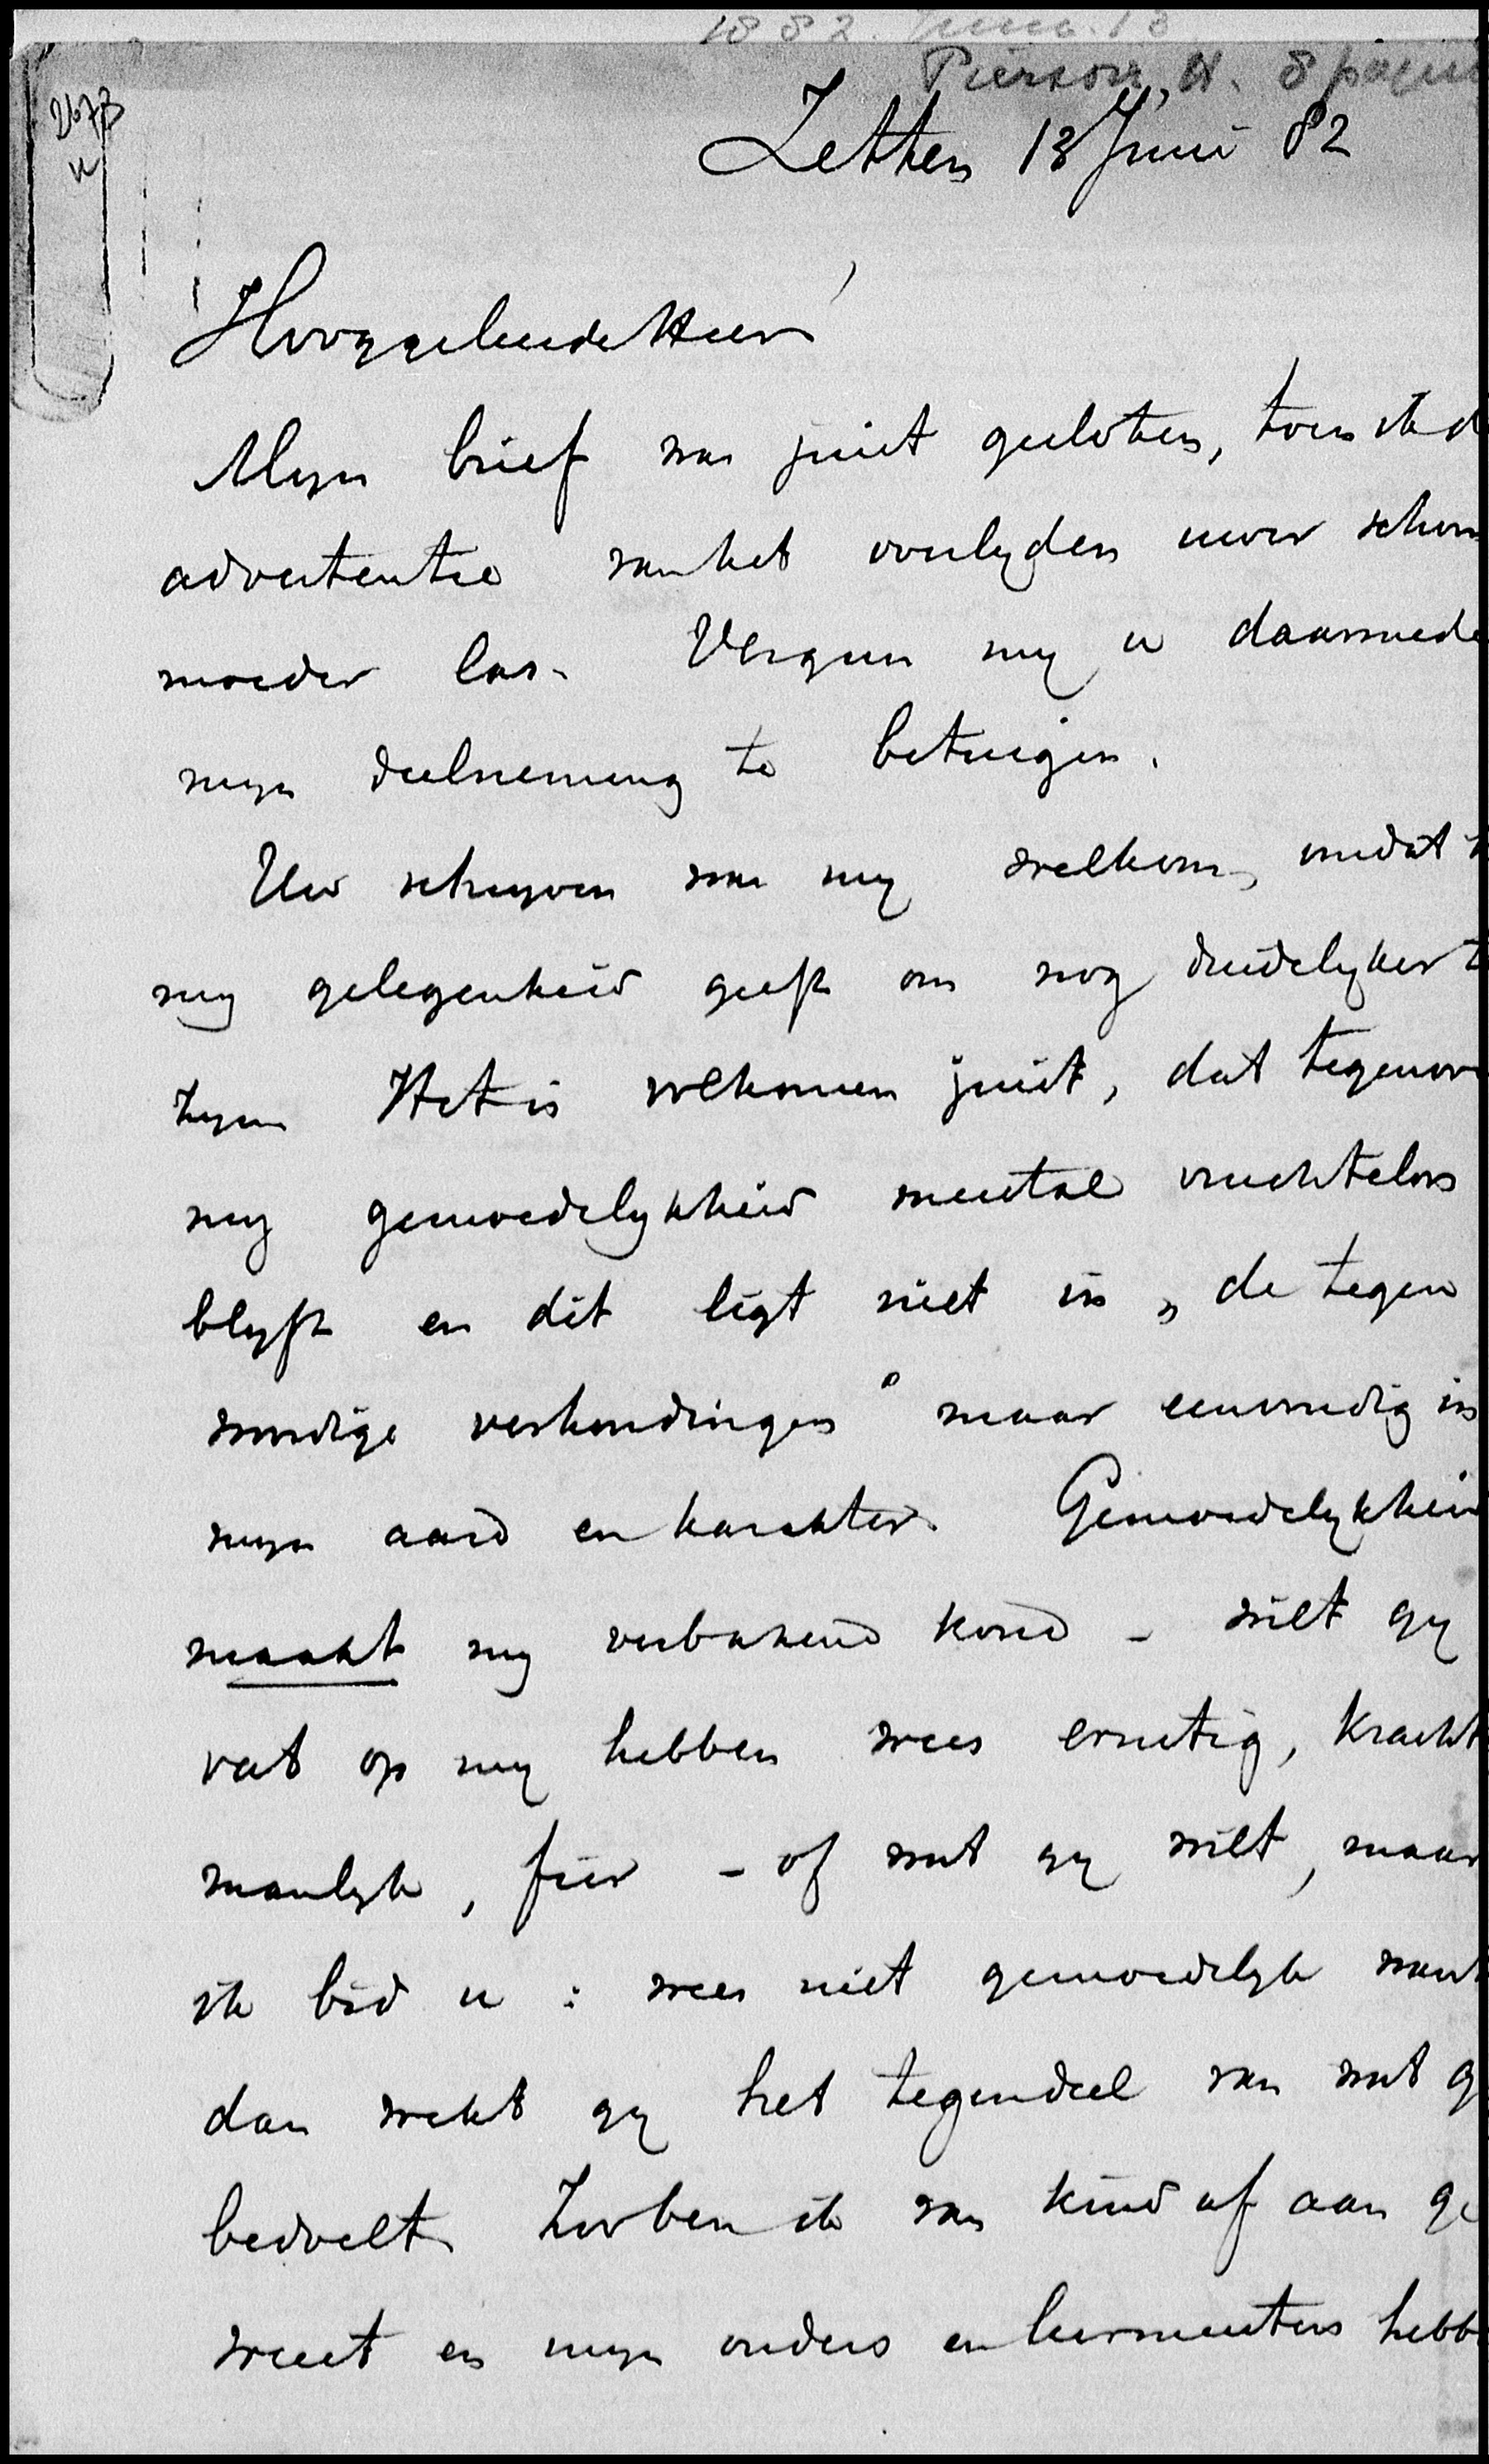 1882. Juni. 13
Pierson, H. 8 pagin
2673
Zetten 13 Juni 82
Hooggeleerde Heer
Myn brief was juist gesloten, toen ik d
advertentie van het overlyden uwer schoon
moeder las. Vergun my u daarmede
myn deelneming te betuigen.
Uw schryven was my welkom, omdat
my gelegenheid geeft om nog duidelyker t
zyn. Het is volkomen juist, dat tegenover
my gemoedelykheid meestal vruchteloos
blyft en dit ligt niet in „de tegen
woordige verhoudingen" maar eenvoudig in
myn aard en karakter. Gemoedelykheid
maakt my verbazend koud - wilt gy
vat op my hebben wees ernstig, kracht
manlyk, fier - of wat gy wilt, maar
ik bid u : wees niet gemoedelyk want
dan wekt gy het tegendeel van wat g
bedoelt. Zoo ben ik van kind af aan ge
weest en myn ouders en leermeesters hebb